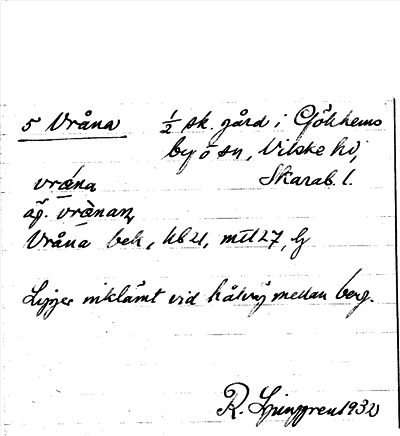 5 Vråna ½ sk. gård i Gökhems
by o sn, Vilske hd,
Skarab. l.
vræna
äg. vrænanz
Vråna bek,
Ligger inklämt vid hålväg mellan berg.
R. Ljunggren 1932